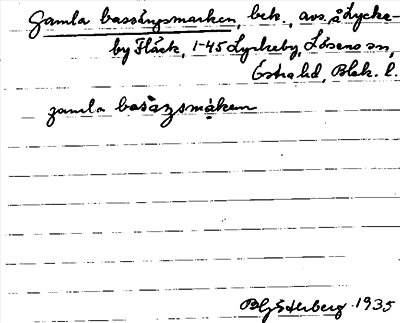 Gamla bassängsmarken, bek., avs. å Lycke-
by Fläck, 1-45 Lyckeby, Lösens sn,
Östra hd, Blek. l.
gamla basäŋsmarken
1935